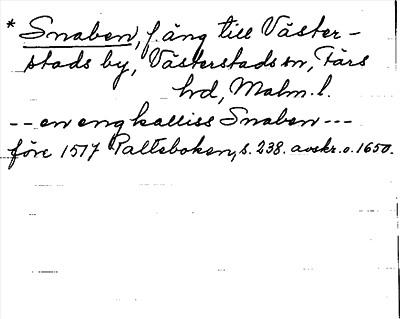 * Snaben, f. äng till Väster-
stads by, Västerstads sn, Färs
hd, Malm. l.
-- en eng kalliss Snaben ---
före 1517 Palteboken, s. 238. avskr. o. 1650.